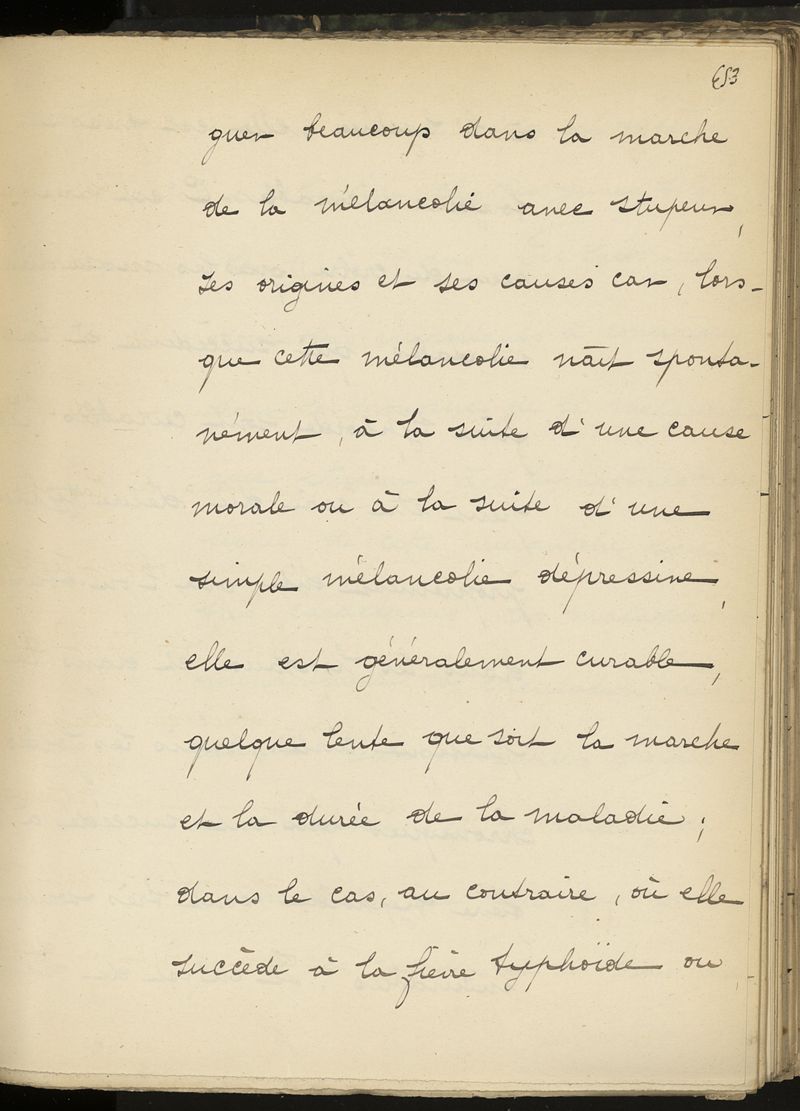 653
guer beaucoup dans la marche
de la mélancolie avec stupeur,
ses origines et ses causes car, lors-
que cette mélancolie naît sponta-
nément, à la suite d'une cause
morale ou à la suite d'une
simple mélancolie dépressive,
elle est généralement curable,
quelque lente que soit la marche
et la durée de la maladie ;
dans le cas, au contraire, où elle
succède à la fièvre typhoïde ou